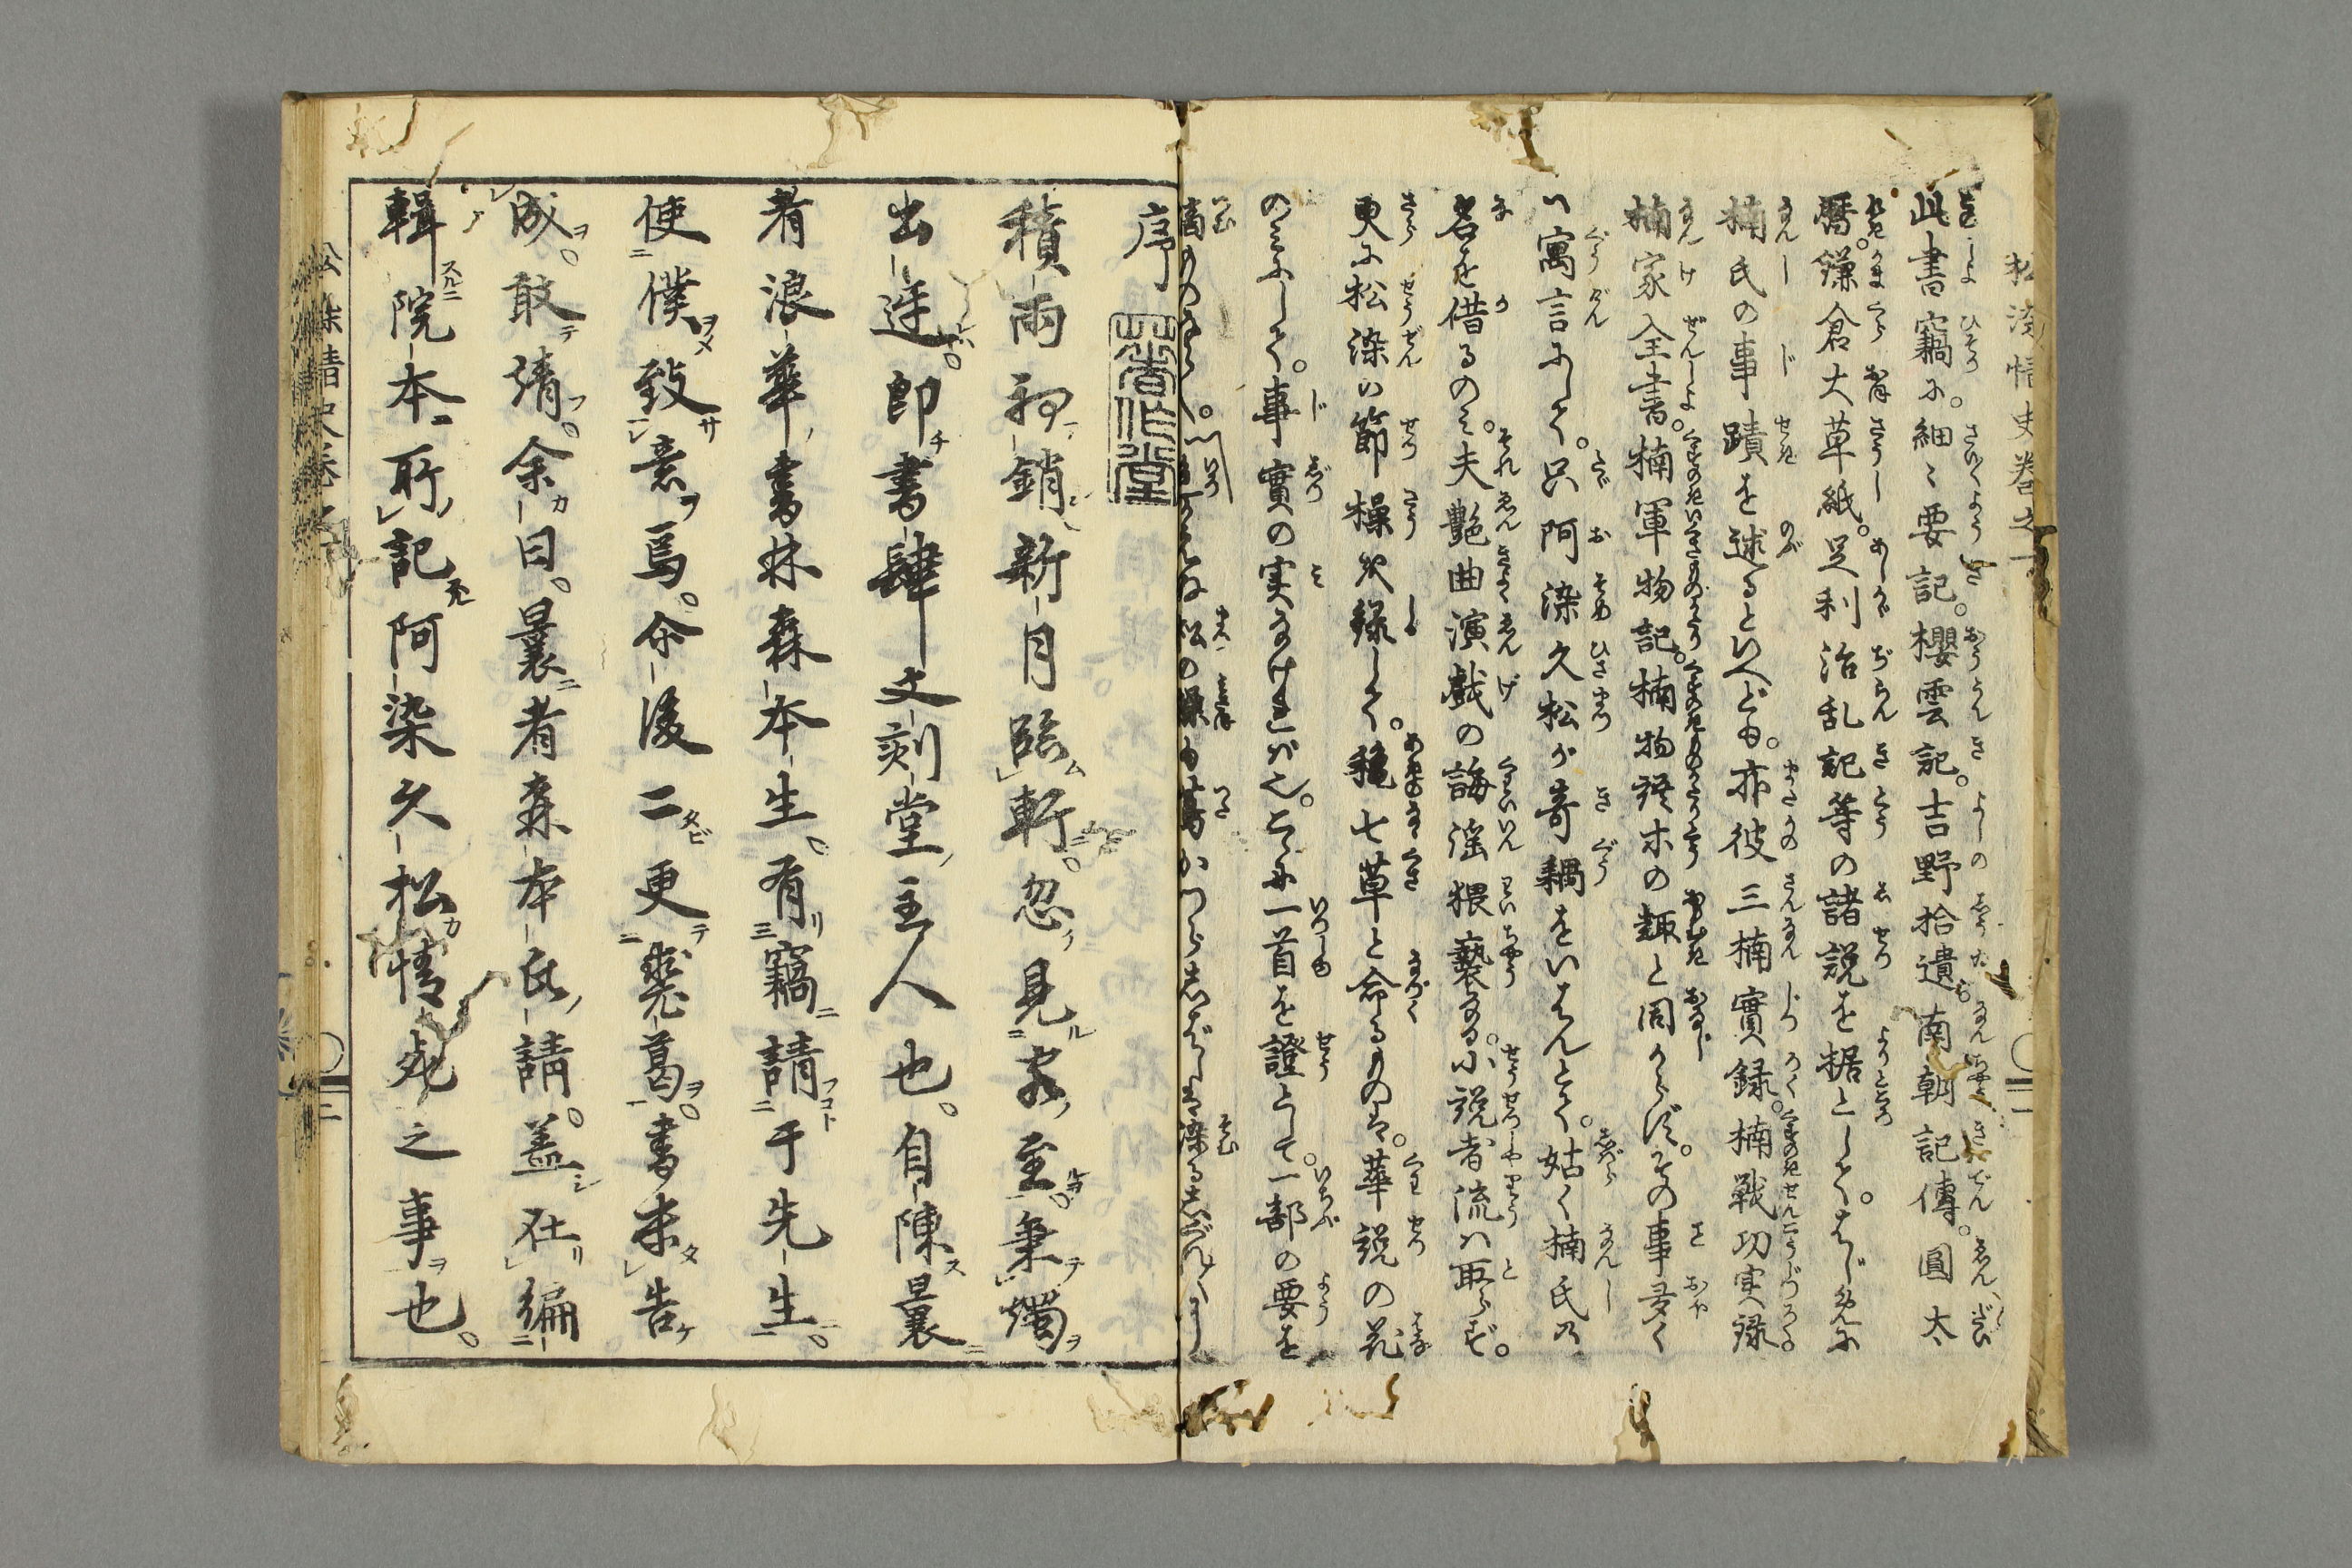 松染情史巻之一
此書竊に。細々要記。櫻雲記。吉野拾遺。南朝記傳。圓太
暦。鎌倉大草紙。足利治乱記等の諸説を据として。はじめに
楠氏の事蹟を述るといへども。亦彼三楠實録。楠戦功実録。
楠家全書。楠軍物記。楠物語ホの趣と同からず。その事多く
ハ寓言にして。只阿染久松が奇耦をいはんとて。姑く楠氏の
名を借るのミ。夫艶曲演戯の誨淫猥褻なる。小説者流ハ取らず。
更に松染ハ節操次録して。穐七草と命るものは。華説の花
のミにして。事實の実なけれバ也。こゝに一首を證として。一部の要を
序
積雨初銷。新月臨軒。忽見客至。秉燭
出迎。即書肆文刻堂主人也。自陳曩
者浪華書林森本生。有竊請于先生。
使僕致意焉。今後二更裘葛。書未告
成。敢請。余曰。曩者森本氏請。盖在編
輯院本所記阿染久松情死之事也。